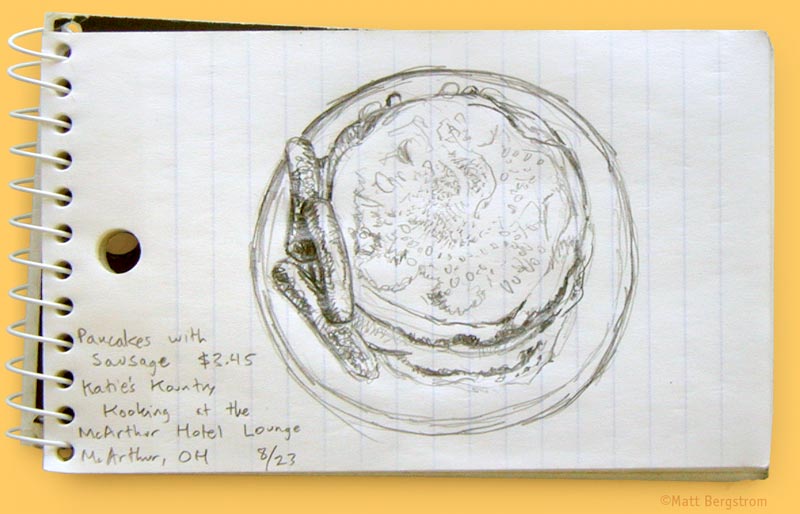 Pancakes with
Sausage $3.45
Katie's Kountry
Kooking at the
McArthur Hotel Lounge
McArthur, OH 8/23
©Matt Bergstrom